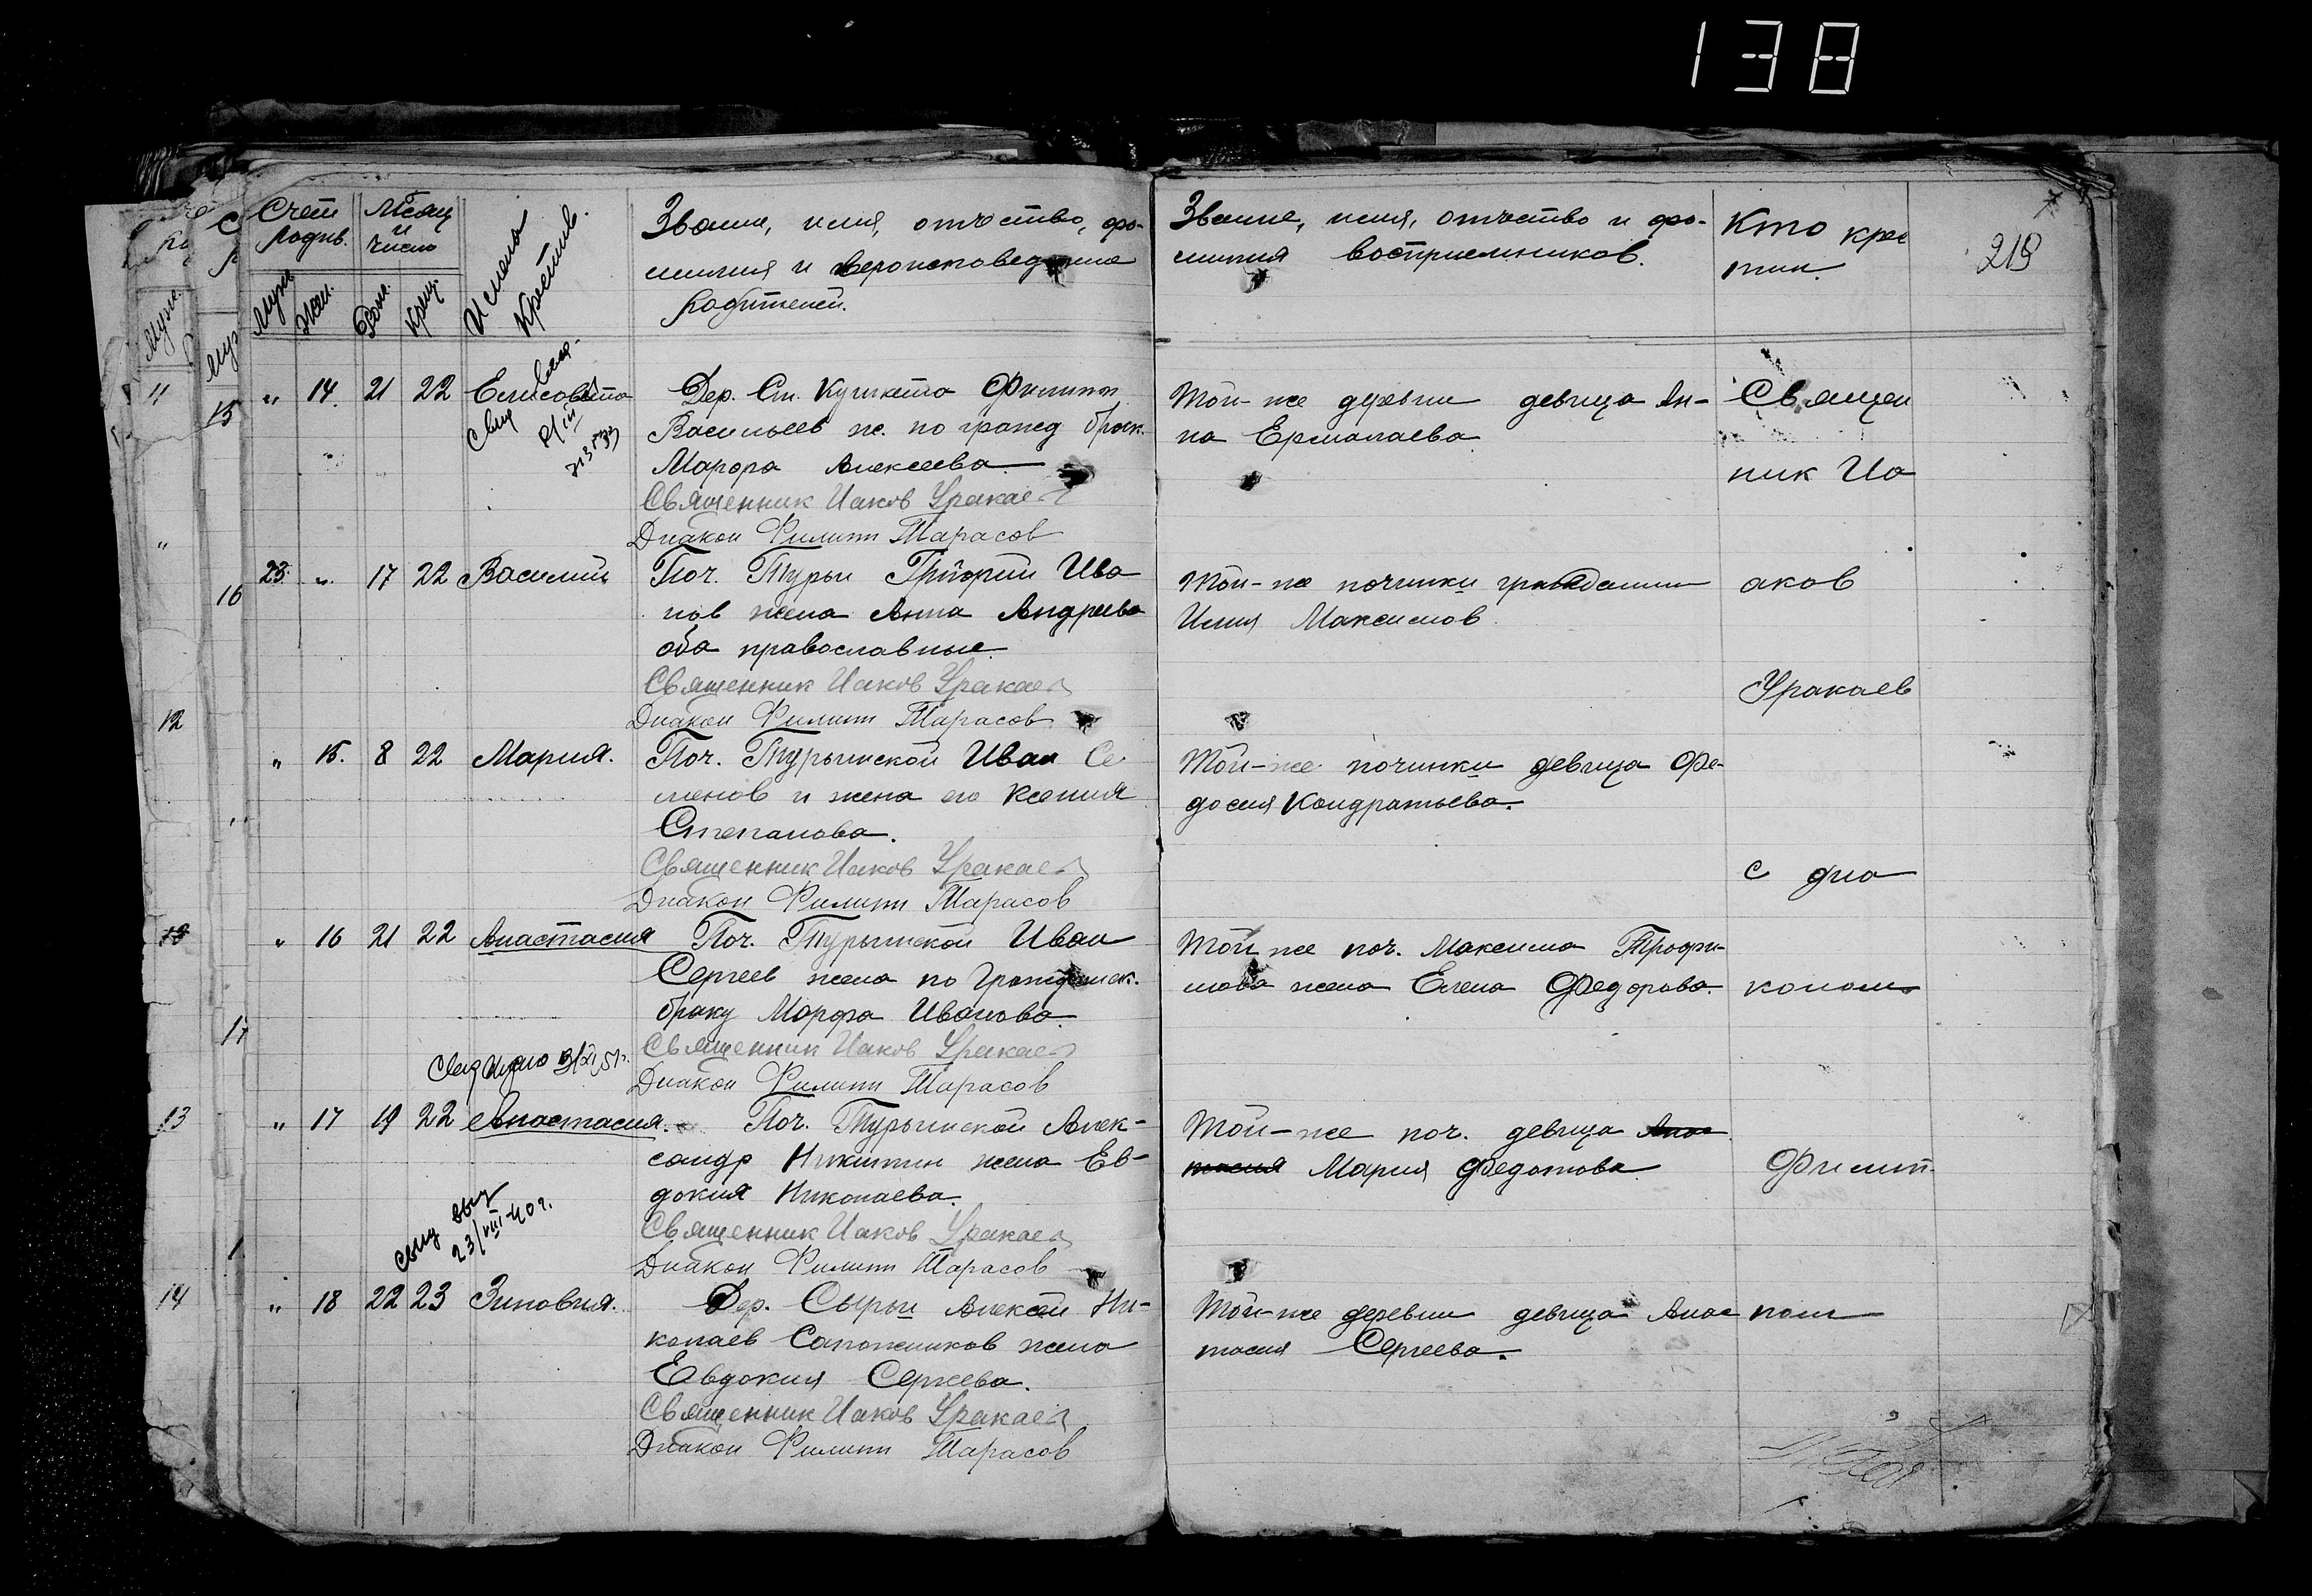 138
Счет родив.
Месяц и число
Имена крестив.
Звание, имя, отчество, фа-
милия и вероисповедание
родителей.
Звание, имя, отчество и фа-
милия восприемников.
Кто крес
тил.
219
Муж. Жен. Рож. Крещ.
" 14. 21 22 Елисовета
Дер. Ст. Кушкета Филипп
Васильев ж. по гражд брак.
Марфа Алексеева
Священник Иаков Уракаев
Диакон Филипп Тарасов
Той-же деревни девица Ан-
на Ермалаева
Священ
ник Иа
23. " 17 22 Василий
Поч. Турьи Григорий Ива
нов жена Анна Андреева
оба православные
Священник Иаков Уракаев
Диакон Филипп Тарасов
Той-же починки гражданин
Илия Максимов
аков
Уракаев
" 15. 8 22 Мария.
Поч. Турьинской Иван Се
менов и жена его Ксения
Степанова.
Священник Иаков Уракаев
Диакон Филипп Тарасов
Той-же починки девица Фе-
досия Кондратьева.
с диа
" 16 21 22 Анастасия
Поч. Турьинской Иван
Сергеев жена по гражданск.
браку Марфа Иванова
Священник Иаков Уракаев
Диакон Филипп Тарасов
Той же поч. Максима Трофи-
мова жена Елена Федорова.
коном
" 17 19 22 Анастасия.
Поч. Турьинской Алек-
сандр Никитин жена Ев-
докия Николаева.
Священник Иаков Уракаев
Диакон Филипп Тарасов
Той-же поч. девица Анас
тасия Мария Федотова
Филип-
свид выд
23/VIII-40 г.
" 18 22 23 Зиновия.
Дер. Сырьи Алексей Ни-
колаев Сапожников жена
Евдокия Сергеева.
Священник Иаков Уракаев
Диакон Филипп Тарасов
Той-же деревни девица Анас
тасия Сергеева.
пом